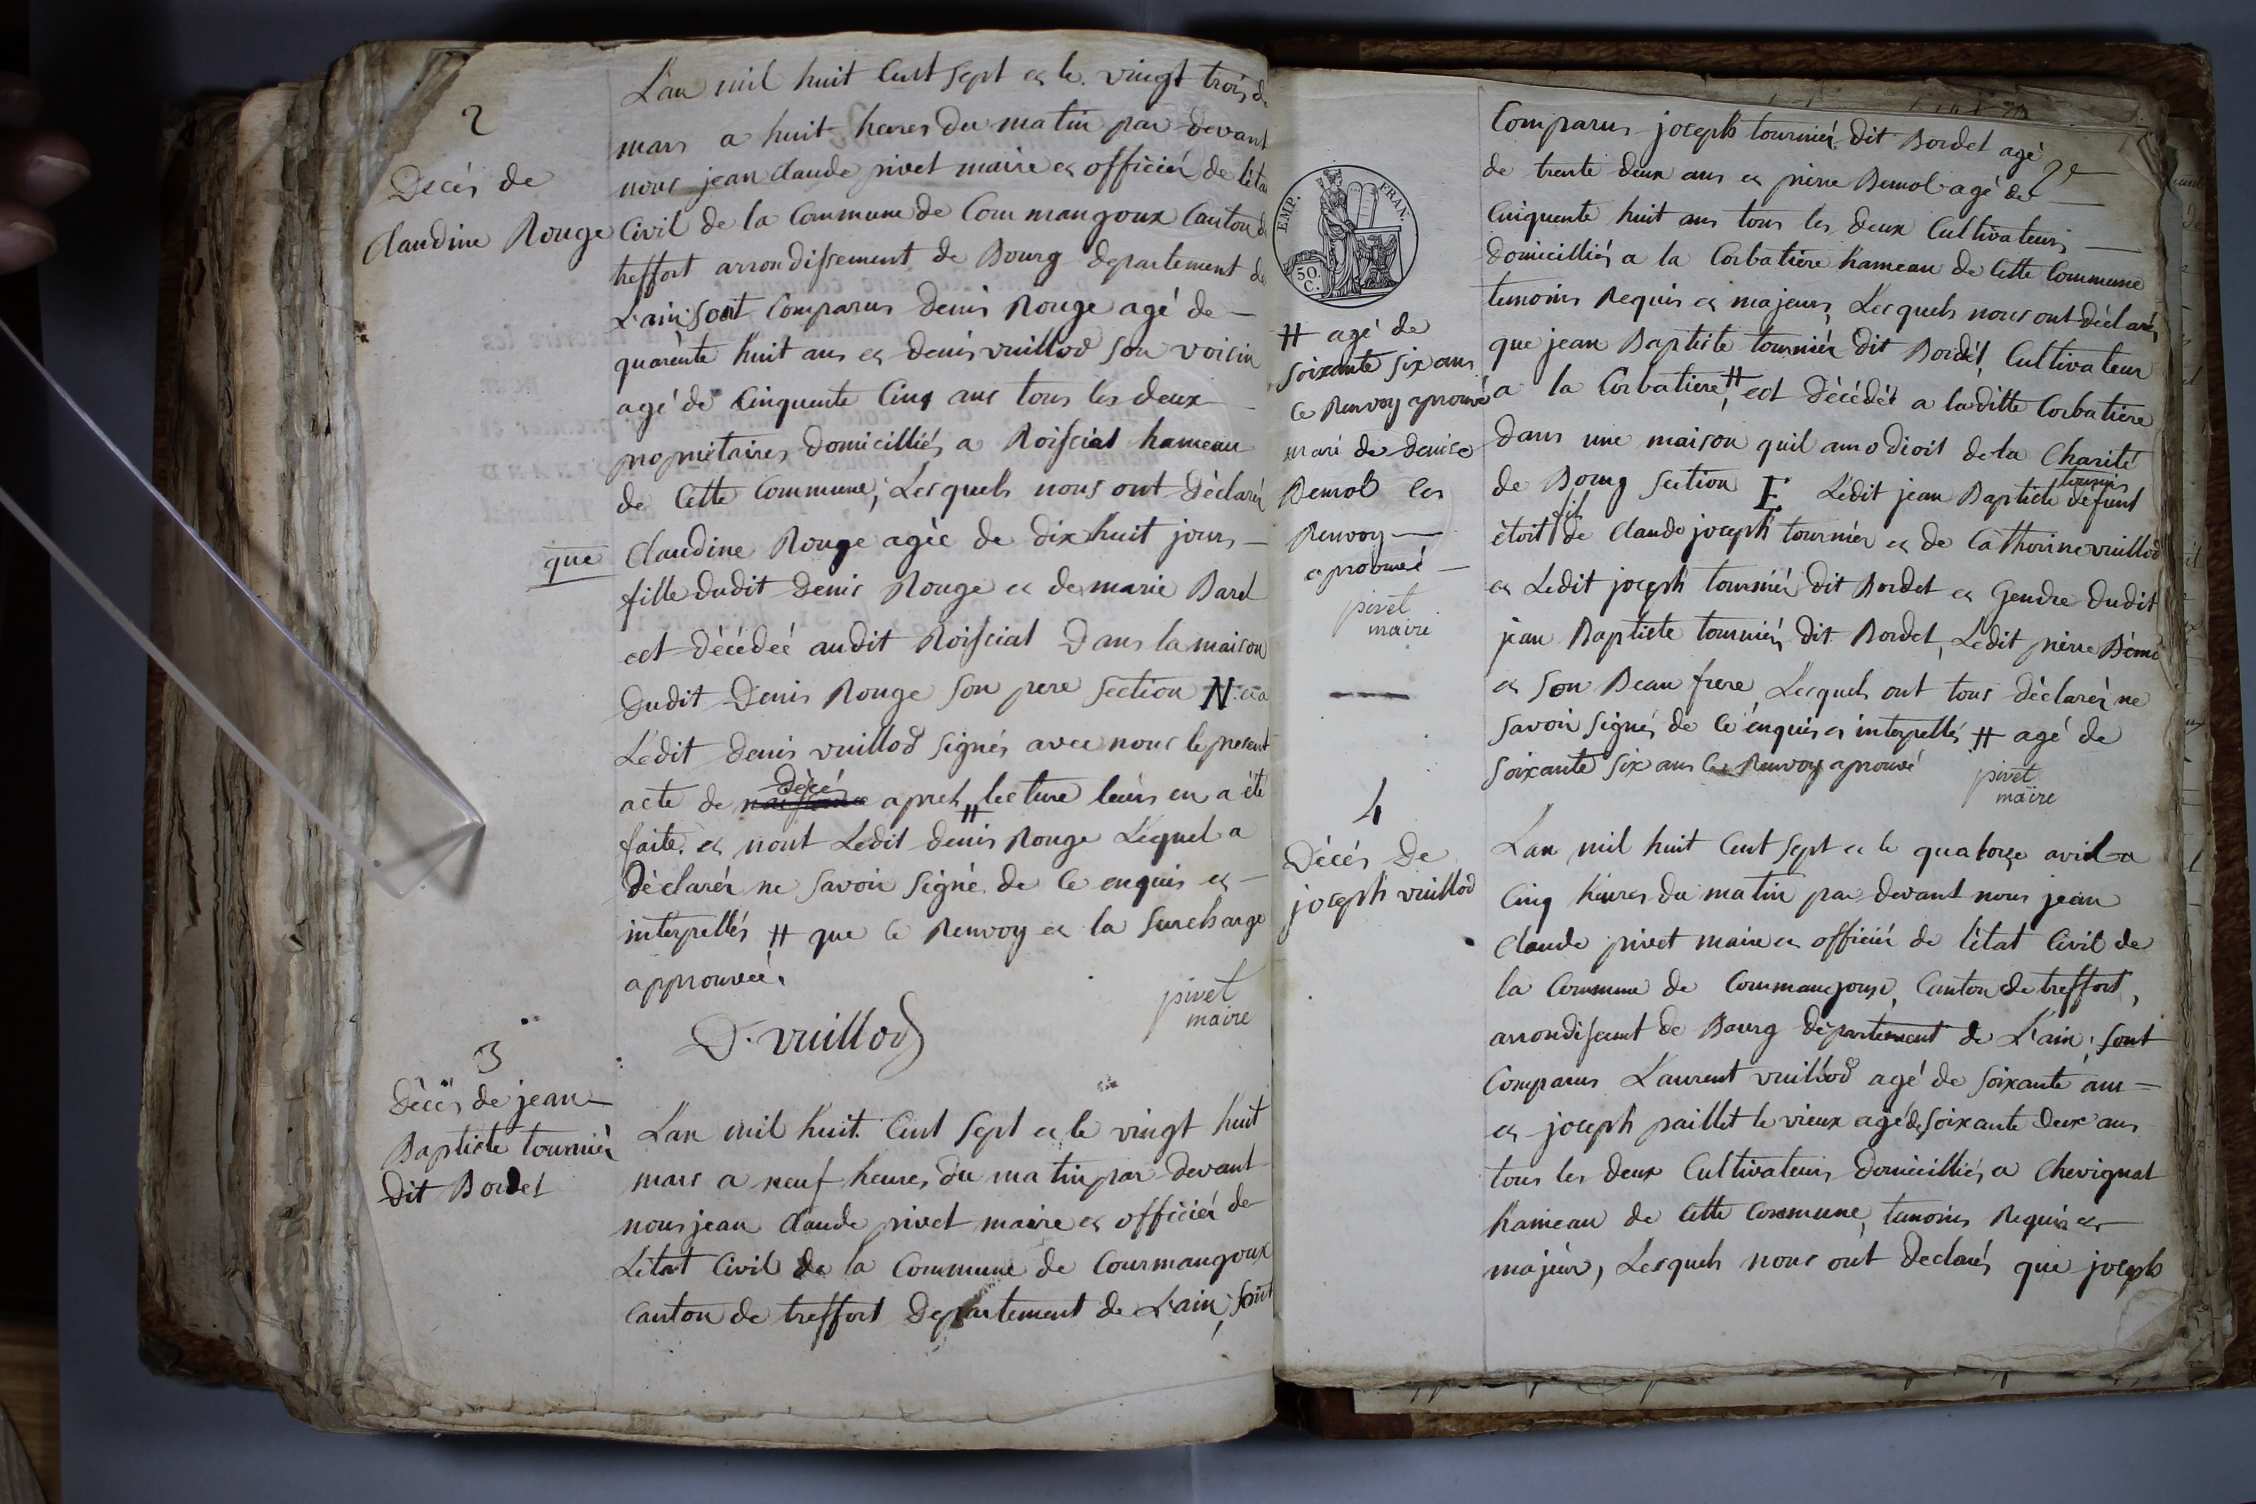 2
Décés de
Claudine Rouge
L'an mil huit Cent Sept et le vingt trois de
mars a huit heures du matin par devant
nous jean claude pivet maire et officiér de léta
Civil de la Commune de Cour mangoux Canton de
treffort arrondissement de Bourg departement de
L'ain; Sont Comparus Denis Rouge agé de
quarènte huit ans et denis vuillod son voisin
agé de Cinquente Cinq ans tous les deux
propriétaires Domicilliés a Roissiat hameau
de Cette Commune, Lesquels nous ont Déclarér
que Claudine Rouge agèe de dix huit jours
fille dudit Denis Rouge et de marie Barel
est décédeé audit Roissiat Dans la maison
Dudit Denis Rouge Son pere Section N. et a
Ledit Denis vuillod signés avec nous le present
acte de naissance Décés apreh lecture leurs en a été
faite. et nont Ledit denis Rouge Lequel a
Déclarér ne savoir signé de Ce enquis et
interpellés # que Ce Renvoy et la Surcharge
approuvéé.
D. vuillod
pivet
maire
3
Décés de jean
Baptiste tourniér
Dit Bordet
L'an mil huit Cent Sept et le vingt huit
mars a neuf heures du matin par devant
nous jean Claude pivet maire et officiér de
Létat Civil de la Commune de Courmangoux
Canton de treffort Departement de L'ain, Sont
2e
Comparus joseph tourniér dit Bordet agé
de trente deux ans et pierre Bemol agé de
Cinquente huit ans tous les deux Cultivateurs
Domicilliés a la Corbatiere hameau de Cette Commune
temoins Requis et majeurs, Lesquels nous ont déclarér
que jean Baptiste tourniér dit Bordét, Cultivateur
a la Corbatiere, # est Décédét a laditte Corbatiere
Dans une maison quil amodioit de la Charité
de Bourg Section E Ledit jean Baptiste tournier défunt
étoit fils de Claude joseph tourniér et de Catherine vuillod
et Ledit joseph tourniér dit Bordet et Gendre dudit
jean Baptiste tourniér dit Bordet, Ledit pierre Bémo
et Son Beau frere, Lesquels ont tous déclarér ne
savoir signés de Ce enquis et interpellés # agé de
Soixante six ans Ce Renvoy aprouvé
pivet
maire
EMP. FRAN.
50.
C.
# agé de
Soixante six ans
Ce Renvoy aprouvé
mari de denise
Bemol les
Renvoy
aprouvéé
pivet
maire
4
Décés De
joseph vuillod
L'an mil huit Cent Sept et le quatorze avril a
Cinq heures du matin par devant nous jean
Claude pivet maire et officiér de létat Civil de
la Commune de Courmangoux, Canton de treffort,
arrondisemt de Bourg département de L'ain; Sont
Comparus Laurent vuillod agé de Soixante ans
et joseph paillet le vieux agé de Soixante deux ans
tous les deux Cultivateurs Domicilliés a Chevignat
hameau de Cette Commune, temoins Requis et
majeur, Lesquels nous ont Declarés que joseph